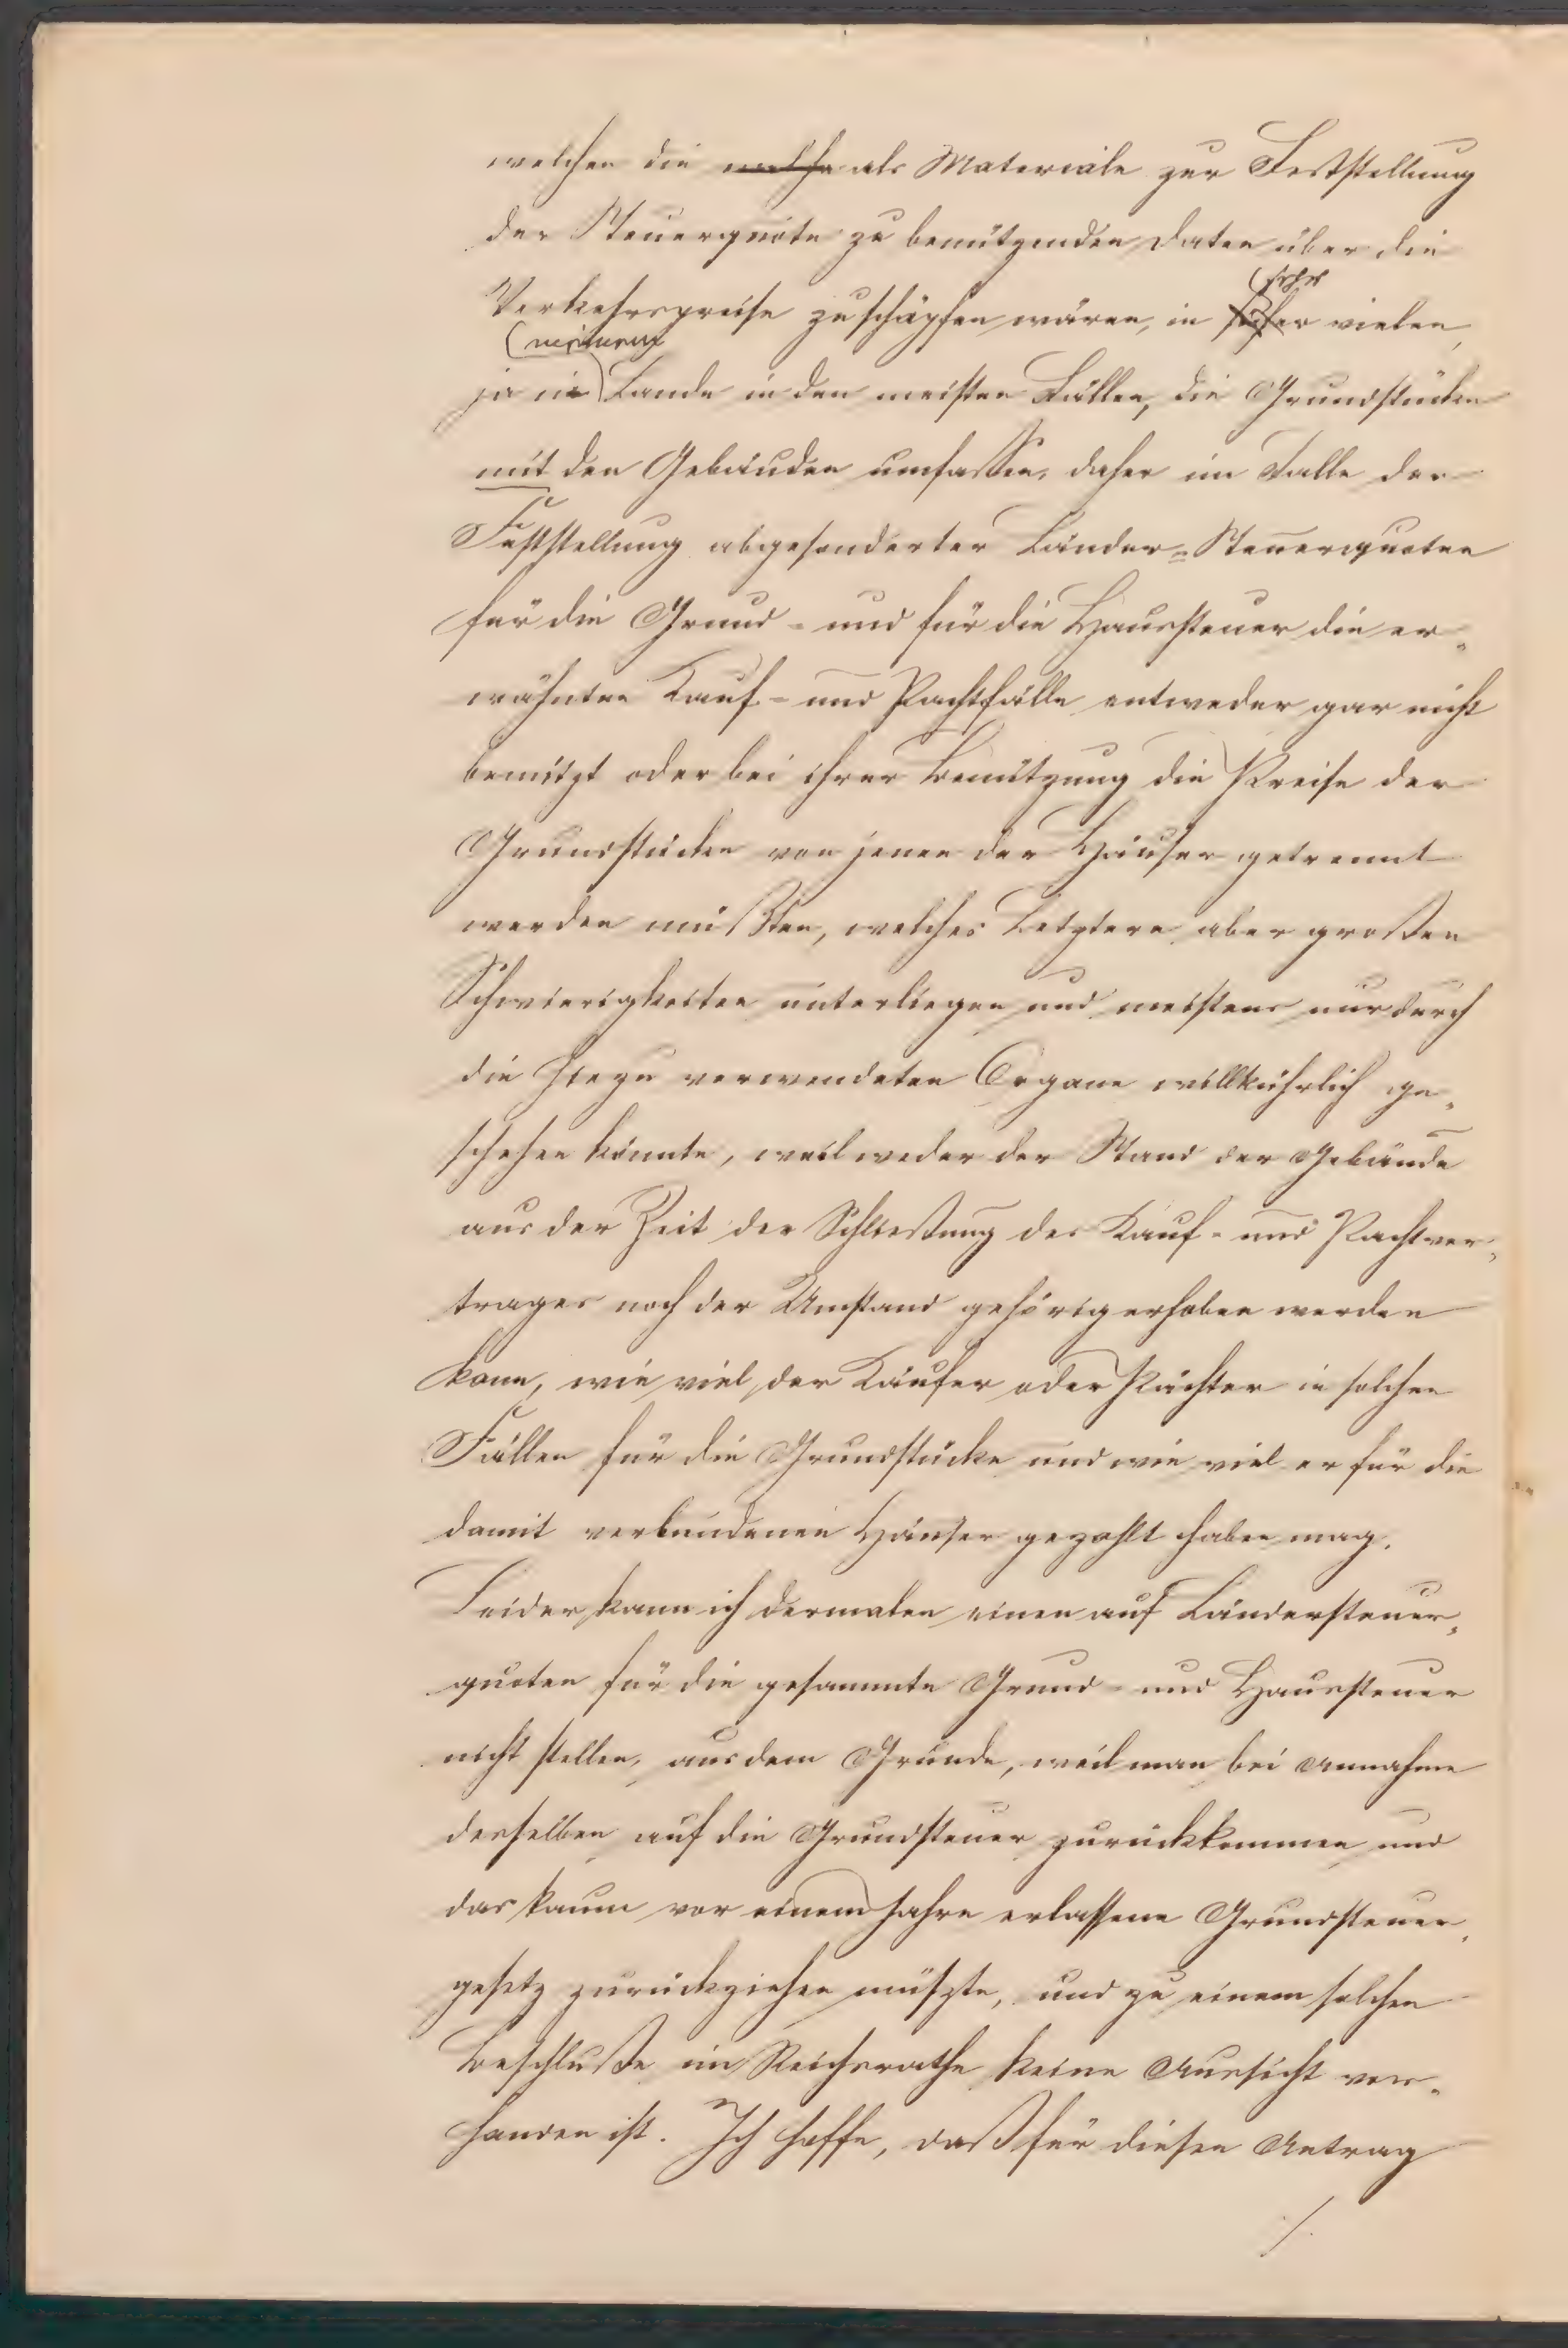 welchen die welche als Materiale zur Feststellung
der Steuerquote zu benützenden Daten über die
Verkehrspreise zu schöpfen wären, in sehr vielen,
ja in Lande in den meisten Fällen, die Grundstücke
mit den Gebäuden umfassen, daher im Falle der
Feststellung abgesonderter Länder=Steuerquoten
für die Grund- und für die Haussteuer die er„
wähnten Kauf- und Pachtfälle entweder gar nicht
benützt oder bei ihrer Benützung die Preise der
Grundstücke von jenen der Häuser getrennt
werden müßten, welches Letztere aber großen
Schwierigkeiten unterliegen und meistens nur durch
die hiezu verwendeten Organe willkührlich ge„
schehen könnte, weil weder der Stand der Gebäude
aus der Zeit der Schließung des Kauf- und Pachtver„
trages noch der Umstand gehörig erhoben werden
kann, wie viel der Käufer oder Pächter in solchen
Fällen für die Grundstücke und wie viel er für die
damit verbundenen Häuser gezahlt haben mag.
Leider kann ich dermalen einen auf Ländersteuer„
quoten für die gesammte Grund- und Haussteuer
nicht stellen, aus dem Grunde, weil man bei Annahme
desselben auf die Grundsteuer zurückkommen und
das kaum vor einem Jahre erlassene Grundsteuer„
gesetz zurückziehen müßte, und zu einem solchen
Beschluße im Reichsrathe keine Aussicht vor„
handen ist. Ich hoffe, daß für diesen Antrag
/.